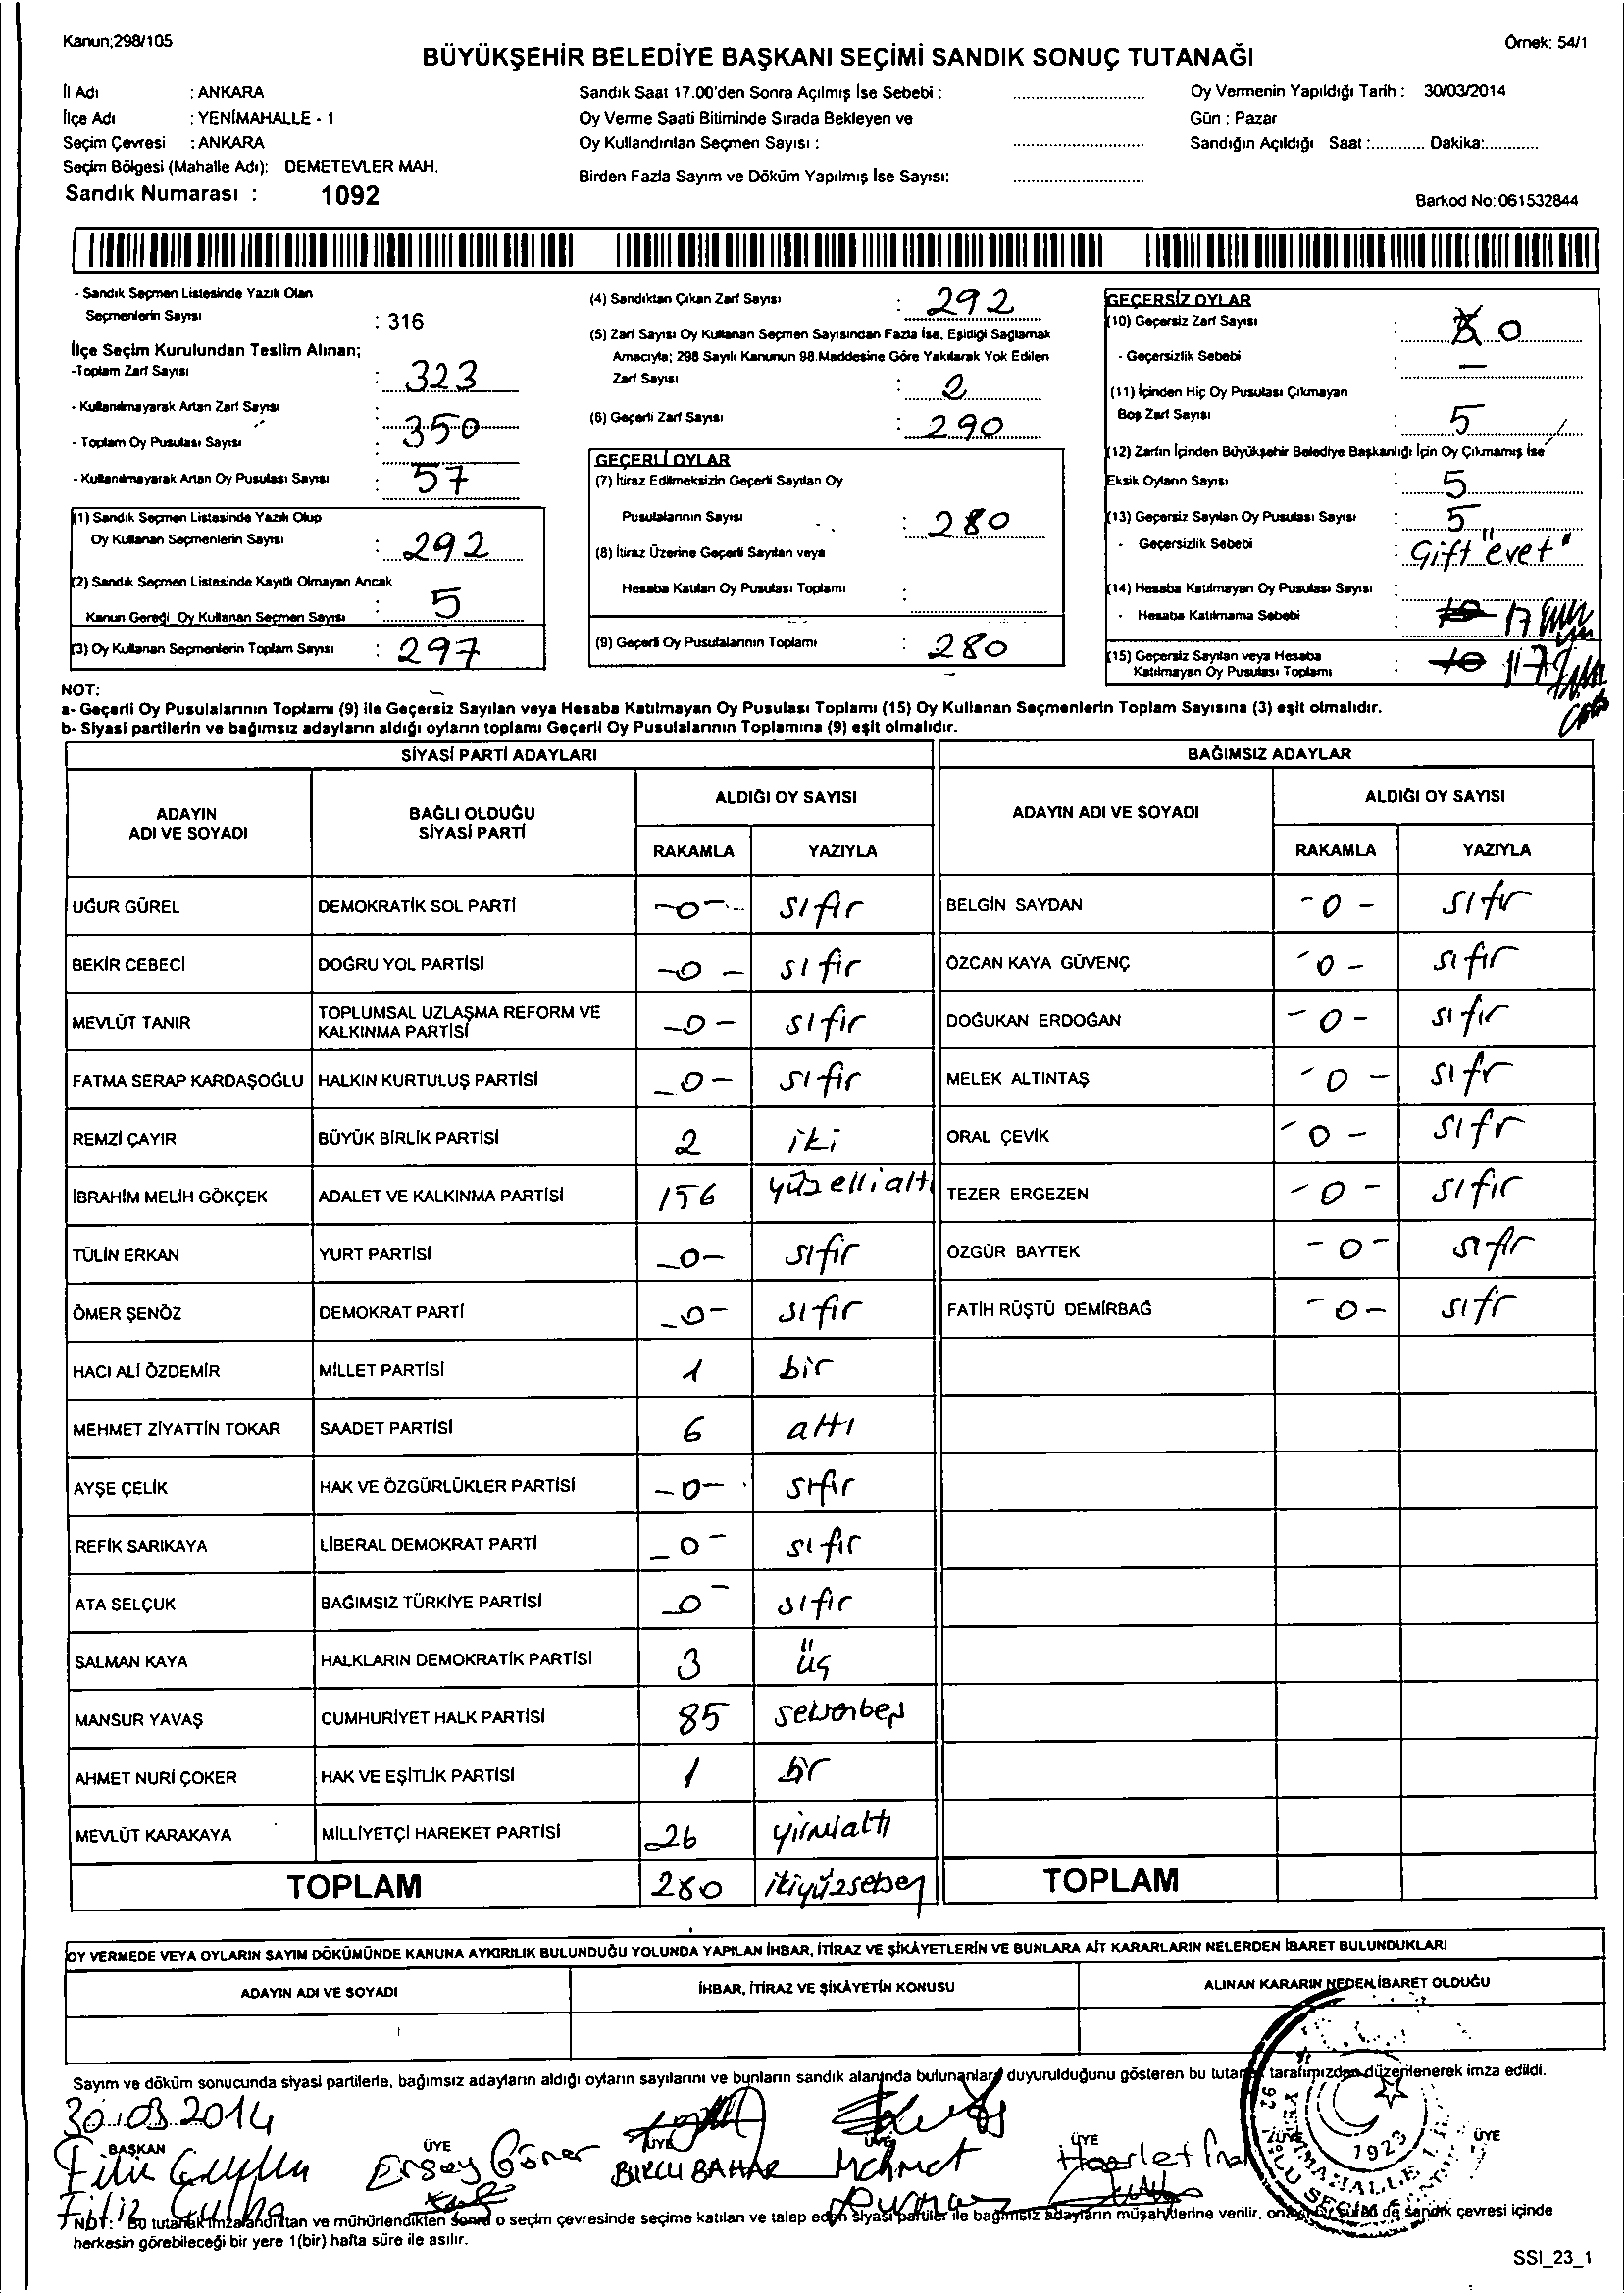 Kanun;298/105
Örnek: 54/1
BÜYÜKŞEHİR BELEDİYE BAŞKANI SEÇİMİ SANDIK SONUÇ TUTANAĞI
İl Adı : ANKARA
İlçe Adı : YENİMAHALLE - 1
Seçim Çevresi : ANKARA
Seçim Bölgesi (Mahalle Adı): DEMETEVLER MAH.
Sandık Numarası : 1092
Sandık Saat 17.00'den Sonra Açılmış İse Sebebi :
Oy Verme Saati Bitiminde Sırada Bekleyen ve
Oy Kullandırılan Seçmen Sayısı :
Birden Fazla Sayım ve Döküm Yapılmış İse Sayısı:
Oy Vermenin Yapıldığı Tarih : 30/03/2014
Gün : Pazar
Sandığın Açıldığı Saat :............ Dakika:............
Barkod No:061532844
- Sandık Seçmen Listesinde Yazılı Olan
Seçmenlerin Sayısı : 316
İlçe Seçim Kurulundan Teslim Alınan;
-Toplam Zarf Sayısı : 323
- Kullanılmayarak Artan Zarf Sayısı
: 350
- Toplam Oy Pusulası Sayısı :
- Kullanılmayarak Artan Oy Pusulası Sayısı : 57
(1) Sandık Seçmen Listesinde Yazılı Olup
Oy Kullanan Seçmenlerin Sayısı : 292
(2) Sandık Seçmen Listesinde Kayıtlı Olmayan Ancak
Kanun Gereği Oy Kullanan Seçmen Sayısı : 5
(3) Oy Kullanan Seçmenlerin Toplam Sayısı : 297
(4) Sandıktan Çıkan Zarf Sayısı : 292
(5) Zarf Sayısı Oy Kullanan Seçmen Sayısından Fazla İse, Eşitliği Sağlamak
Amacıyla; 298 Sayılı Kanunun 98.Maddesine Göre Yakılarak Yok Edilen
Zarf Sayısı : 2
(6) Geçerli Zarf Sayısı : 290
GEÇERLİ OYLAR
(7) İtiraz Edilmeksizin Geçerli Sayılan Oy
Pusulalarının Sayısı : 280
(8) İtiraz Üzerine Geçerli Sayılan veya
Hesaba Katılan Oy Pusulası Toplamı :
(9) Geçerli Oy Pusulalarının Toplamı : 280
GEÇERSİZ OYLAR
(10) Geçersiz Zarf Sayısı : 0
- Geçersizlik Sebebi : —
(11) İçinden Hiç Oy Pusulası Çıkmayan
Boş Zarf Sayısı : 5
(12) Zarfın İçinden Büyükşehir Belediye Başkanlığı İçin Oy Çıkmamış İse
Eksik Oyların Sayısı : 5
(13) Geçersiz Sayılan Oy Pusulası Sayısı : 5
- Geçersizlik Sebebi : Çift "evet"
(14) Hesaba Katılmayan Oy Pusulası Sayısı :
- Hesaba Katılmama Sebebi : 10 17
(15) Geçersiz Sayılan veya Hesaba
Katılmayan Oy Pusulası Toplamı : 10 17
NOT:
a- Geçerli Oy Pusulalarının Toplamı (9) ile Geçersiz Sayılan veya Hesaba Katılmayan Oy Pusulası Toplamı (15) Oy Kullanan Seçmenlerin Toplam Sayısına (3) eşit olmalıdır.
b- Siyasi partilerin ve bağımsız adayların aldığı oyların toplamı Geçerli Oy Pusulalarının Toplamına (9) eşit olmalıdır.
SİYASİ PARTİ ADAYLARI BAĞIMSIZ ADAYLAR
ADAYIN ADI VE SOYADI
BAĞLI OLDUĞU SİYASİ PARTİ
ALDIĞI OY SAYISI
RAKAMLA YAZIYLA
ADAYIN ADI VE SOYADI
ALDIĞI OY SAYISI
RAKAMLA YAZIYLA
UĞUR GÜREL DEMOKRATİK SOL PARTİ -0- sıfır BELGİN SAYDAN -0- sıfır
BEKİR CEBECİ DOĞRU YOL PARTİSİ -0- sıfır ÖZCAN KAYA GÜVENÇ -0- sıfır
MEVLÜT TANIR TOPLUMSAL UZLAŞMA REFORM VE KALKINMA PARTİSİ -0- sıfır DOĞUKAN ERDOĞAN -0- sıfır
FATMA SERAP KARDAŞOĞLU HALKIN KURTULUŞ PARTİSİ -0- sıfir MELEK ALTINTAŞ -0- sıfr
REMZİ ÇAYIR BÜYÜK BİRLİK PARTİSİ 2 iki ORAL ÇEVİK -0- sıfr
İBRAHİM MELİH GÖKÇEK ADALET VE KALKINMA PARTİSİ 156 yüzellialtı TEZER ERGEZEN -0- sıfır
TÜLİN ERKAN YURT PARTİSİ -0- sıfır ÖZGÜR BAYTEK -0- sıfır
ÖMER ŞENÖZ DEMOKRAT PARTİ -0- sıfır FATİH RÜŞTÜ DEMİRBAĞ -0- sıfr
HACI ALİ ÖZDEMİR MİLLET PARTİSİ 1 bir
MEHMET ZİYATTİN TOKAR SAADET PARTİSİ 6 altı
AYŞE ÇELİK HAK VE ÖZGÜRLÜKLER PARTİSİ -0- sıfır
REFİK SARIKAYA LİBERAL DEMOKRAT PARTİ -0- sıfır
ATA SELÇUK BAĞIMSIZ TÜRKİYE PARTİSİ -0- sıfır
SALMAN KAYA HALKLARIN DEMOKRATİK PARTİSİ 3 üç
MANSUR YAVAŞ CUMHURİYET HALK PARTİSİ 85 seksenbeş
AHMET NURİ ÇOKER HAK VE EŞİTLİK PARTİSİ 1 bir
MEVLÜT KARAKAYA MİLLİYETÇİ HAREKET PARTİSİ 26 yirmialtı
TOPLAM 280 ikiyüzseksen TOPLAM
OY VERMEDE VEYA OYLARIN SAYIM DÖKÜMÜNDE KANUNA AYKIRILIK BULUNDUĞU YOLUNDA YAPILAN İHBAR, İTİRAZ VE ŞİKÂYETLERİN VE BUNLARA AİT KARARLARIN NELERDEN İBARET BULUNDUKLARI
ADAYIN ADI VE SOYADI İHBAR, İTİRAZ VE ŞİKÂYETİN KONUSU ALINAN KARARIN NEDEN İBARET OLDUĞU
Sayım ve döküm sonucunda siyasi partilerle, bağımsız adayların aldığı oyların sayılarını ve bunların sandık alanında bulunanlara duyurulduğunu gösteren bu tutanak tarafımızdan düzenlenerek imza edildi.
30.03.2014
BAŞKAN ÜYE ÜYE ÜYE ÜYE ÜYE ÜYE
Ersoy Göner BURCU BAHAR Mehmet
Filiz
1923
NOT: Bu tutanak imzalandıktan ve mühürlendikten sonra o seçim çevresinde seçime katılan ve talep eden siyasi partiler ile bağımsız adayların müşahitlerine verilir, onaylı bir sureti de sandık çevresi içinde
herkesin görebileceği bir yere 1(bir) hafta süre ile asılır.
SSI_23_1